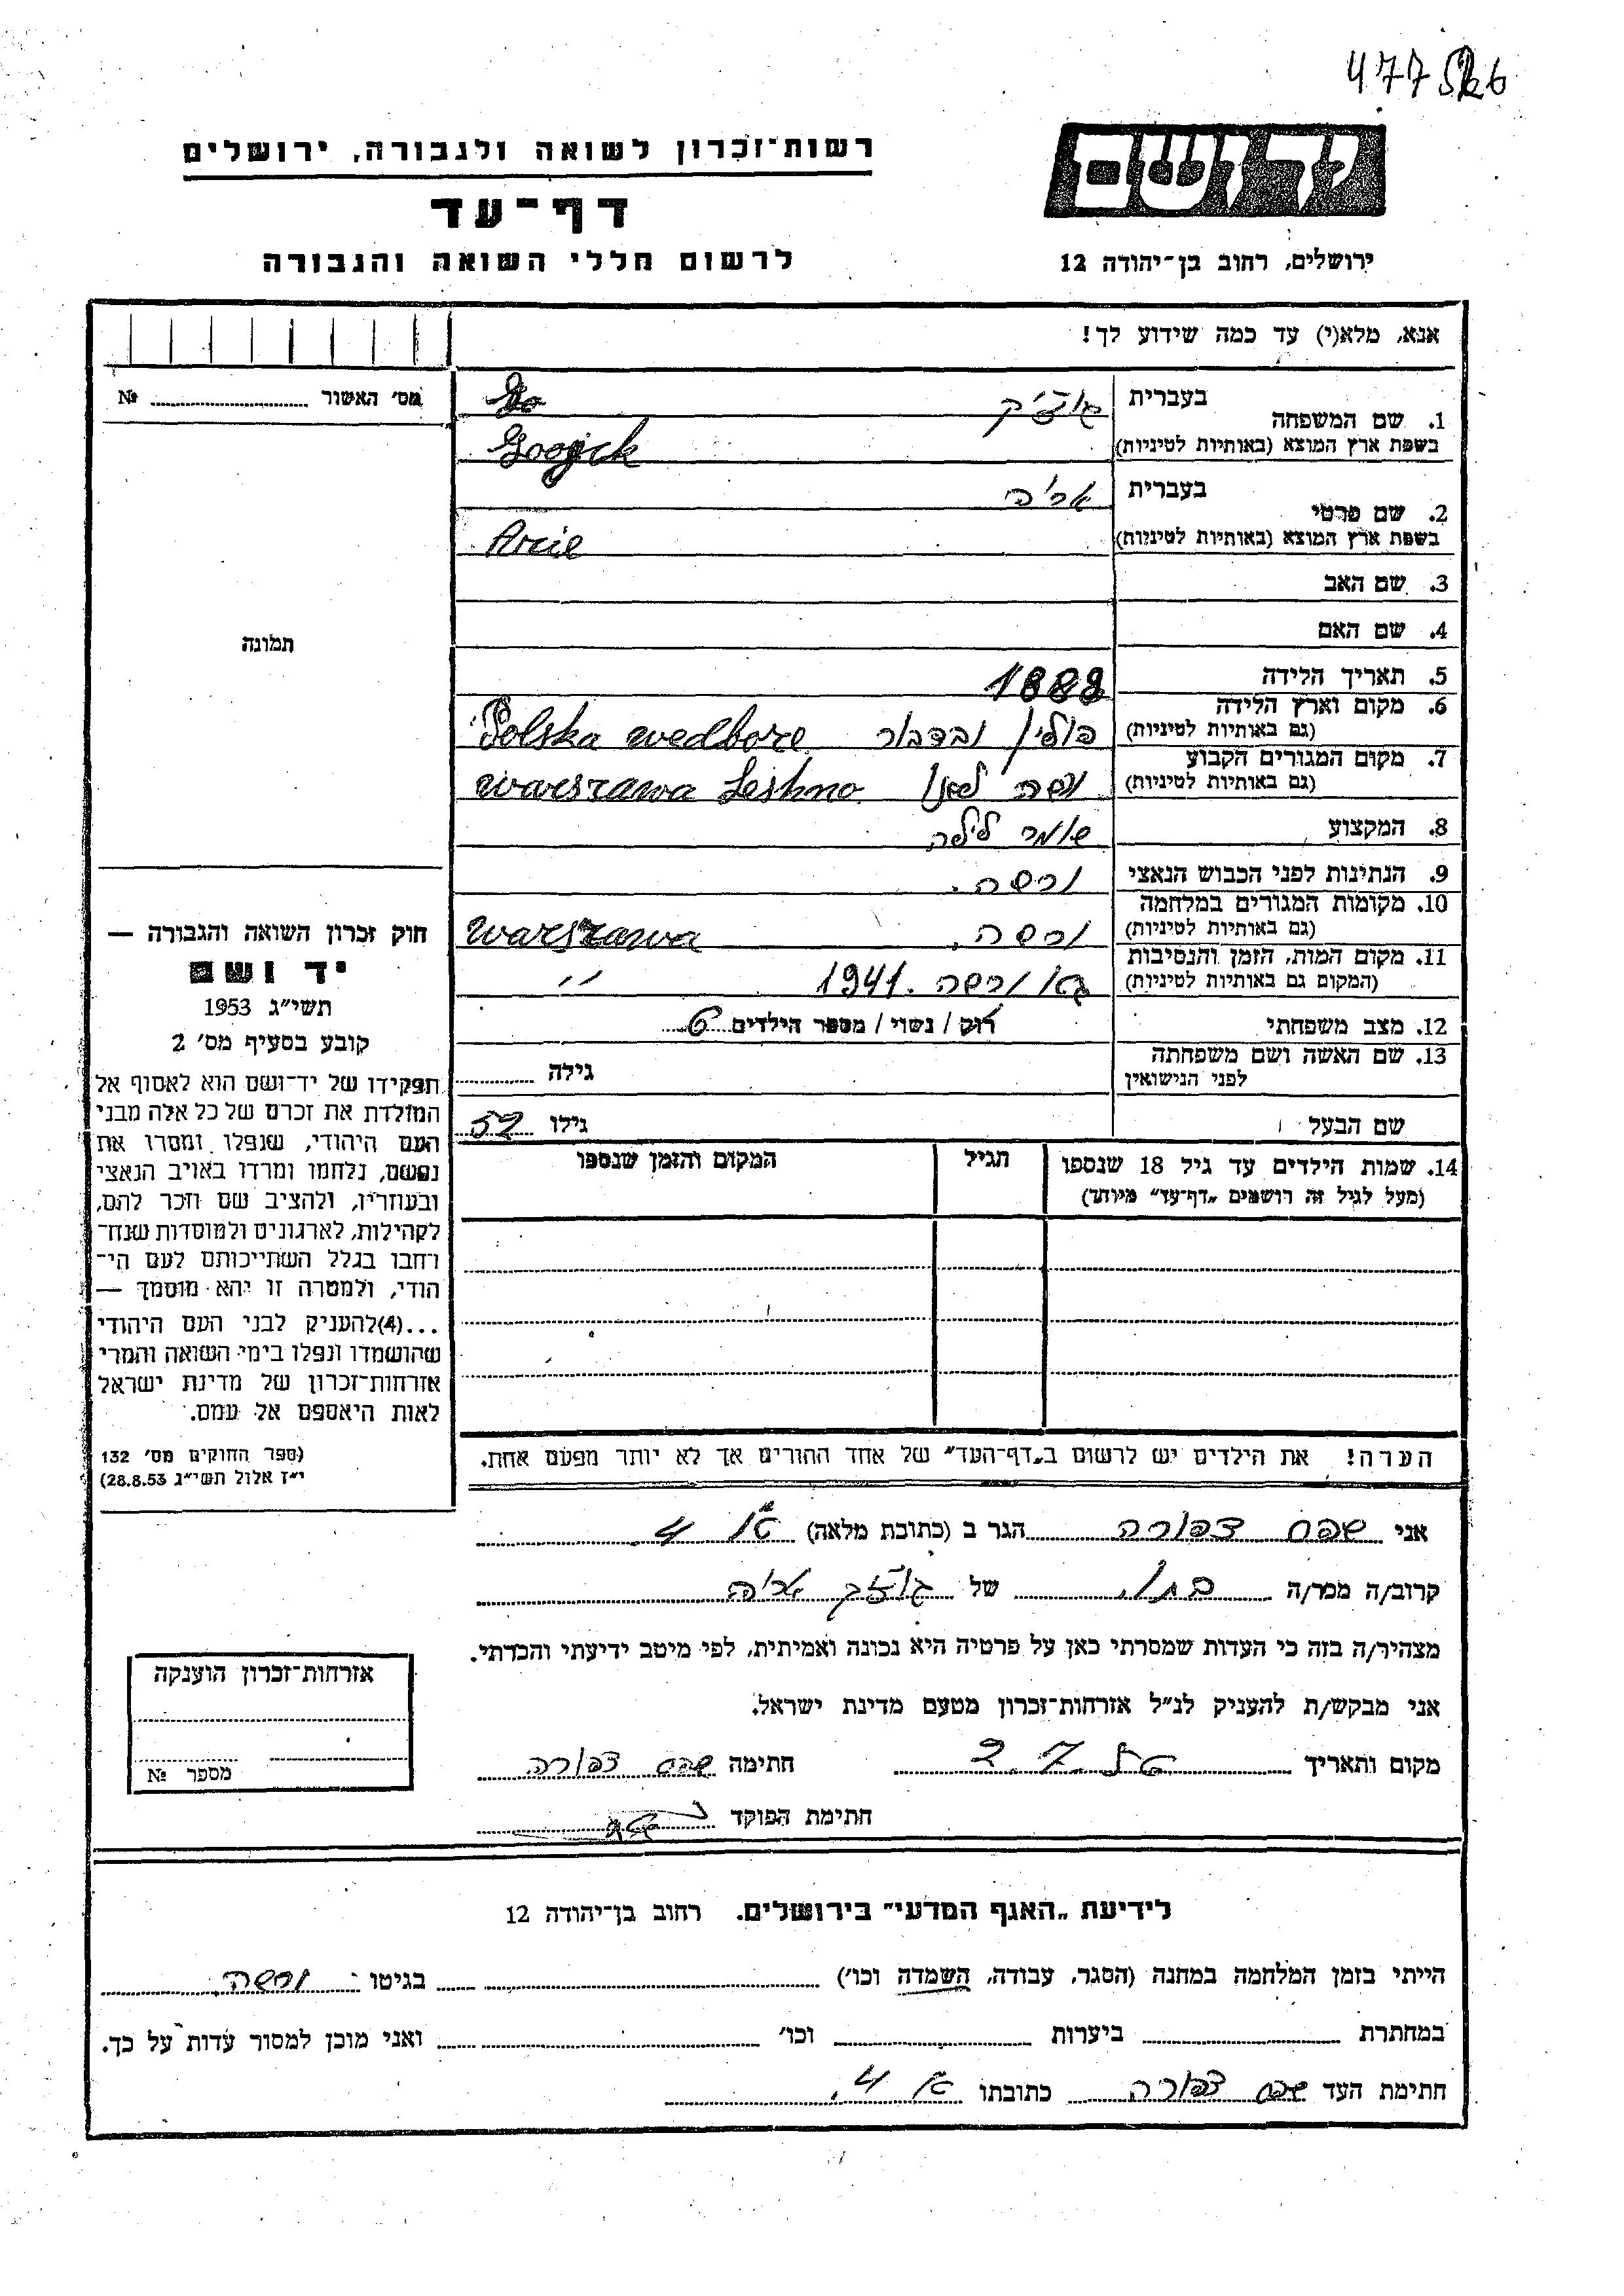 477526
רשות־זכרון לשואה ולגבורה, ירושלים
ידושם
דף־עד
לרשום חללי השואה והגבורה
ירושלים, רחוב בן־יהודה 12
אנא, מלא(י) עד כמה שידוע לך!
מס' האשור № 
1. שם המשפחה בעברית
בשפת ארץ המוצא (באותיות לטיניות)
2. שם פרטי בעברית אריה
בשפת ארץ המוצא (באותיות לטיניות) Arcie
3. שם האב
4. שם האם
5. תאריך הלידה
6. מקום וארץ הלידה
(גם באותיות לטיניות) פולין Polska wedbore
7. מקום המגורים הקבוע
(גם באותיות לטיניות) warszawa Leshno
8. המקצוע שומר לילה
9. הנתינות לפני הכבוש הנאצי ורשה.
10. מקומות המגורים במלחמה
(גם באותיות לטיניות) ורשה. warszawa
11. מקום המות, הזמן והנסיבות
(המקום גם באותיות לטיניות) ורשה. 1941 ״
12. מצב משפחתי רוק / נשוי / מספר הילדים 6
13. שם האשה ושם משפחתה
לפני הנישואין גילה
שם הבעל גילו 52
14. שמות הילדים עד גיל 18 שנספו הגיל המקום והזמן שנספו
(מעל לגיל זה רושמים „דף־עד״ מיוחד)
תמונה
חוק זכרון השואה והגבורה —
יד ושם
תשי״ג 1953
קובע בסעיף מס' 2
תפקידו של יד־ושם הוא לאסוף אל
המולדת את זכרם של כל אלה מבני
העם היהודי, שנפלו ומסרו את
נפשם, נלחמו ומרדו באויב הנאצי
ובעוזריו, ולהציב שם וזכר להם,
לקהילות, לארגונים ולמוסדות שנח־
רחבו בגלל השתייכותם לעם הי־
הודי, ולמטרה זו יהא מוסמך —
...(4)להעניק לבני העם היהודי
שהושמדו ונפלו בימי השואה והמרי
אזרחות־זכרון של מדינת ישראל
לאות היאספם אל עמם.
(ספר החוקים מס' 132
י״ז אלול תשי״ג 28.8.53)
הערה! את הילדים יש לרשום ב„דף־העד״ של אחד ההורים אך לא יותר מפעם אחת.
אני צפורה הגר ב (כתובת מלאה)
קרוב/ה מכר/ה של אריה
מצהיר/ה בזה כי העדות שמסרתי כאן על פרטיה היא נכונה ואמיתית, לפי מיטב ידיעתי והכרתי.
אני מבקש/ת להעניק לנ״ל אזרחות־זכרון מטעם מדינת ישראל.
מקום ותאריך חתימה צפורה
חתימת הפוקד
אזרחות־זכרון הוענקה
מספר №
לידיעת „האגף המדעי״ בירושלים. רחוב בן־יהודה 12
הייתי בזמן המלחמה במחנה (הסגר, עבודה, השמדה וכו') בגיטו ורשה
במחתרת ביערות וכו' ואני מוכן למסור עדות על כך.
חתימת העד צפורה כתובתו